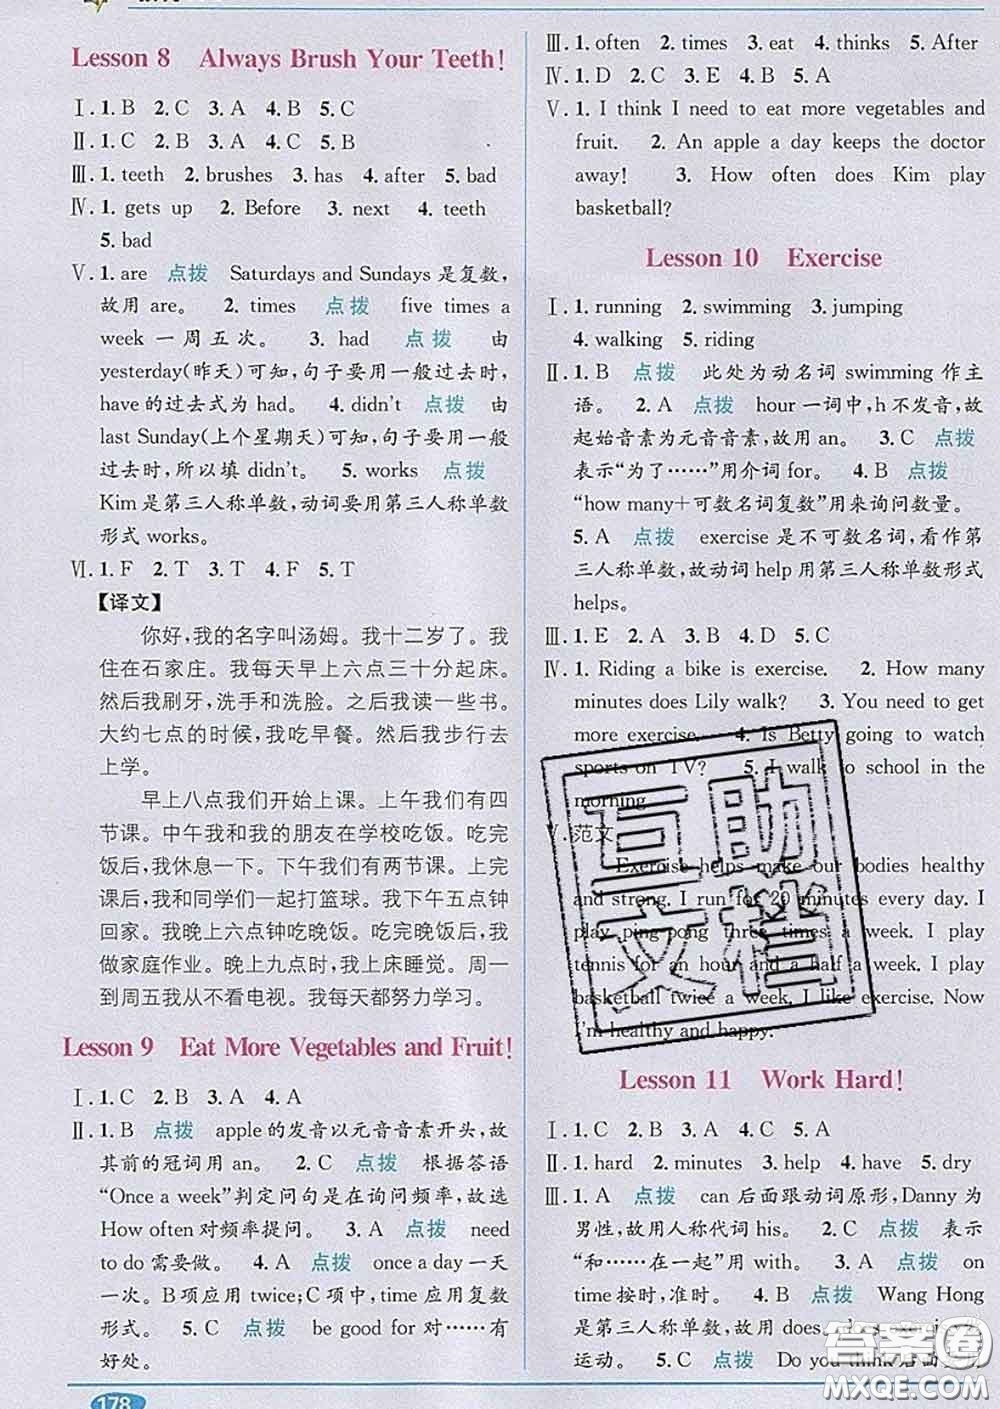 Lesson 8 Always Brush Your Teeth!
Ⅰ. 1. B 2. C 3. A 4. B 5. C
Ⅱ. 1. C 2. B 3. A 4. C 5. B
Ⅲ. 1. teeth 2. brushes 3. has 4. after 5. bad
Ⅳ. 1. gets up 2. Before 3. next 4. teeth
5. bad
Ⅴ. 1. are 点拨 Saturdays and Sundays 是复数,
故用 are。 2. times 点拨 five times a
week 一周五次。 3. had 点拨 由
yesterday(昨天)可知,句子要用一般过去时,
have 的过去式为 had。 4. didn't 点拨 由
last Sunday(上个星期天)可知,句子要用一般
过去时,所以填 didn't。 5. works 点拨
Kim 是第三人称单数,动词要用第三人称单数
形式 works。
Ⅵ. 1. F 2. T 3. T 4. F 5. T
【译文】
你好,我的名字叫汤姆。我十二岁了。我
住在石家庄。我每天早上六点三十分起床。
然后我刷牙,洗手和洗脸。之后我读一些书。
大约七点的时候,我吃早餐。然后我步行去
上学。
早上八点我们开始上课。上午我们有四
节课。中午我和我的朋友在学校吃饭。吃完
饭后,我休息一下。下午我们有两节课。上完
课后,我和同学们一起打篮球。我下午五点钟
回家。我晚上六点钟吃晚饭。吃完晚饭后,我
做家庭作业。晚上九点时,我上床睡觉。周一
到周五我从不看电视。我每天都努力学习。
Lesson 9 Eat More Vegetables and Fruit!
Ⅰ. 1. C 2. B 3. A 4. A
Ⅱ. 1. B 点拨 apple 的发音以元音音素开头,故
其前的冠词用 an。 2. C 点拨 根据答语
“Once a week”判定问句是在询问频率,故选
How often 对频率提问。 3. A 点拨 need
to do 需要做。 4. A 点拨 once a day 一天
一次。B 项应用 twice;C 项中,time 应用复数
形式。 5. C 点拨 be good for 对……有
好处。
178
Ⅲ. 1. often 2. times 3. eat 4. thinks 5. After
Ⅳ. 1. D 2. C 3. E 4. B 5. A
Ⅴ. 1. I think I need to eat more vegetables and
fruit. 2. An apple a day keeps the doctor
away! 3. How often does Kim play
basketball?
Lesson 10 Exercise
Ⅰ. 1. running 2. swimming 3. jumping
4. walking 5. riding
Ⅱ. 1. B 点拨 此处为动名词 swimming 作主
语。 2. A 点拨 hour 一词中,h 不发音,故
起始音素为元音音素,故用 an。 3. C 点拨
表示“为了……”用介词 for。 4. B 点拨
“how many+可数名词复数”用来询问数量。
5. A 点拨 exercise 是不可数名词,看作第
三人称单数,故动词 help 用第三人称单数形式
helps。
Ⅲ. 1. E 2. A 3. B 4. D 5. C
Ⅳ. 1. Riding a bike is exercise. 2. How many
minutes does Lily walk? 3. You need to get
more exercise. 4. Is Betty going to watch
sports on TV? 5. I walk to school in the
morning.
Ⅴ. 范文
Exercise helps make our bodies healthy
and strong. I run for 20 minutes every day. I
play ping-pong three times a week. I play
tennis for an hour and a half a week. I play
basketball twice a week. I like exercise. Now
I'm healthy and happy.
Lesson 11 Work Hard!
Ⅰ. 1. C 2. B 3. A 4. C 5. A
Ⅱ. 1. hard 2. minutes 3. help 4. have 5. dry
Ⅲ. 1. A 点拨 can 后面跟动词原形,Danny 为
男性,故用人称代词 his。 2. C 点拨 表示
“和……在一起”用 with。 3. A 点拨 on
time 按时,准时。 4. B 点拨 Wang Hong
是第三人称单数,故用 does, does exercise 做
运动。 5. C 点拨 Do you think 后面
互助文档
答案圈
MXQE.COM